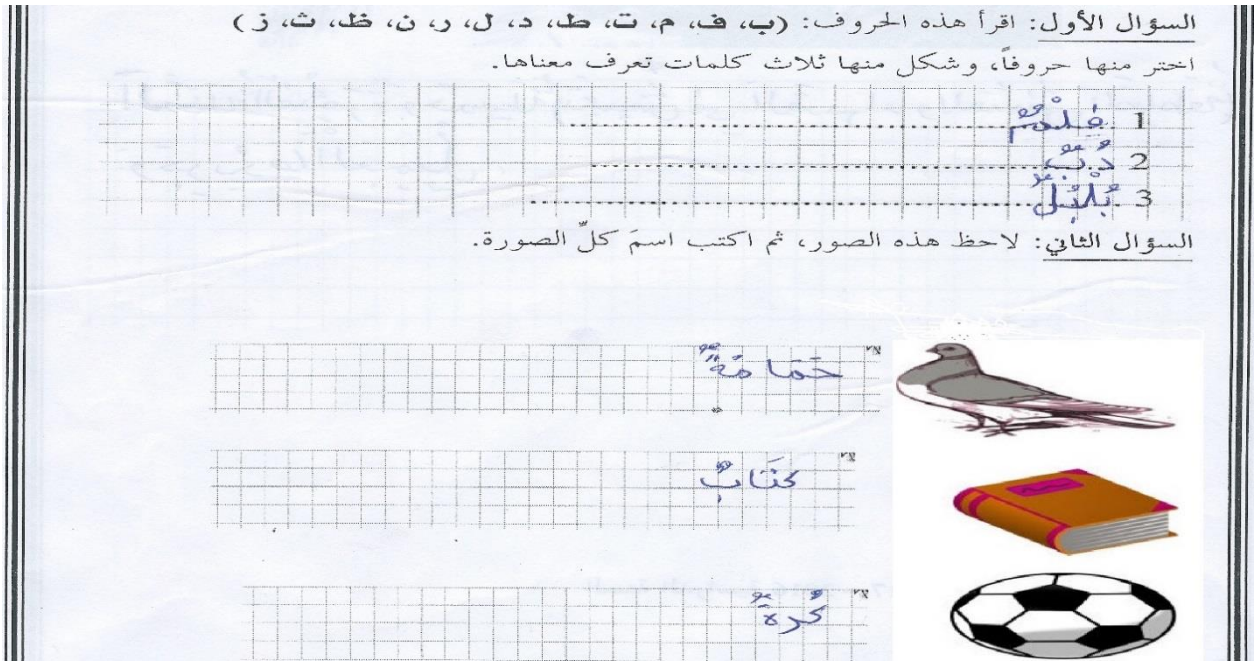 السؤال الأول: اقرأ هذه الحروف: (ب، ف، م، ت، ط، د، ل، ر، ن، ظ، ث، ز)
اختر منها حروفاً، وشكل منها ثلاث كلمات تعرف معناها.
1 فِلْمٌ
2 دُبٌّ
3 بُلْبُلٌ
السؤال الثاني: لاحظ هذه الصور، ثم اكتب اسمَ كلِّ الصورة.
حَمَامَةٌ
كتَابٌ
كُرةٌ